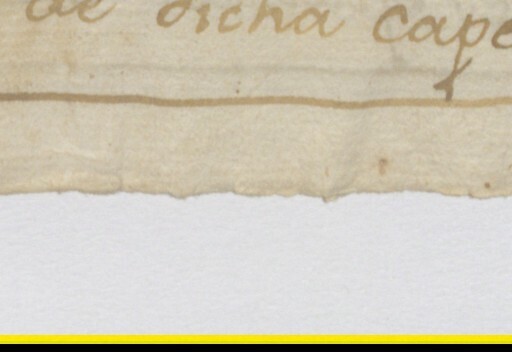 de dicha cape